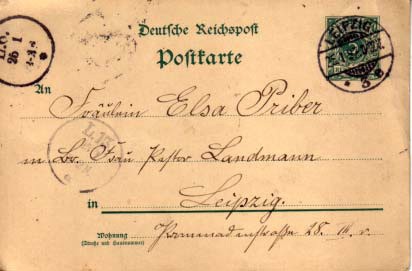 Deutsche Reichspost
Postkarte
LEIPZIG
An
Fräulein Elsa Priber
Frau Pastor Landmann
in Leipzig.
Wohnung
(Straße und Hausnummer)
Promenadenstrasse 28.